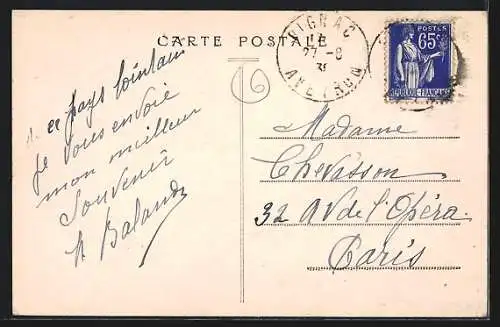 CARTE POSTALE
AVEYRON
27 -8
38
POSTES
65c
REPUBLIQUE FRANÇAISE
6
ce pays lointain
je vous envoie
mon meilleur
Souvenir
Madame
Chevasson
32 AV de l'Opéra.
Paris